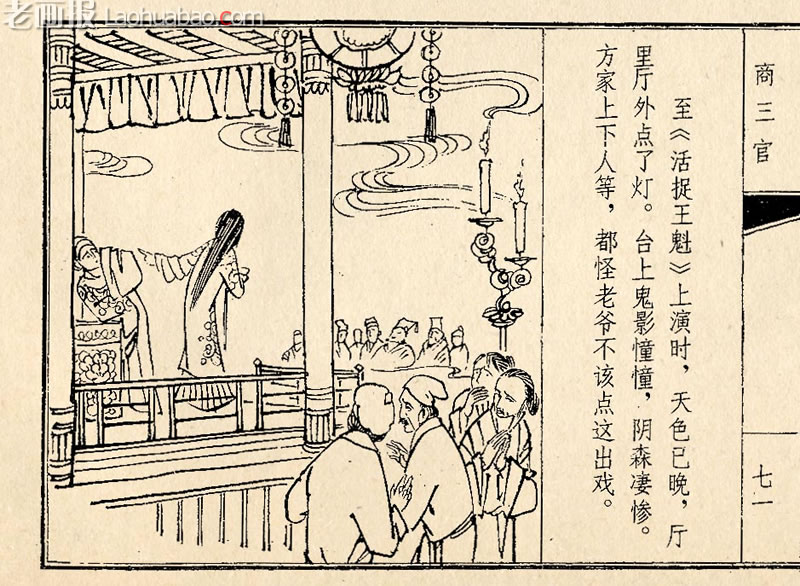 老画报 Laohuabao.com
商三官
至《活捉王魁》上演时，天色已晚，厅
里厅外点了灯。台上鬼影憧憧，阴森凄惨。
方家上下人等，都怪老爷不该点这出戏。
七一